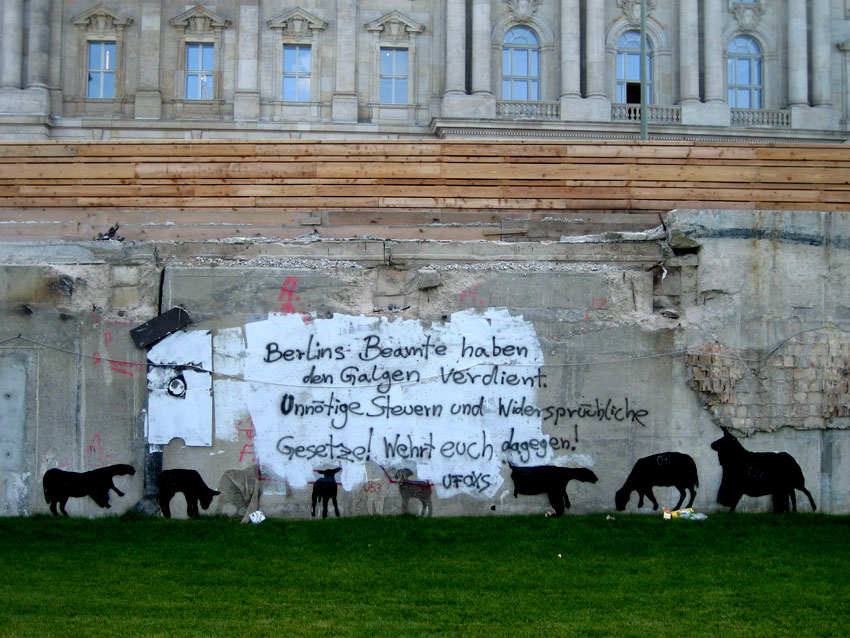 Berlins Beamte haben
den Galgen verdient.
Unnötige Steuern und Widersprüchliche
Gesetze! Wehrt euch dagegen!